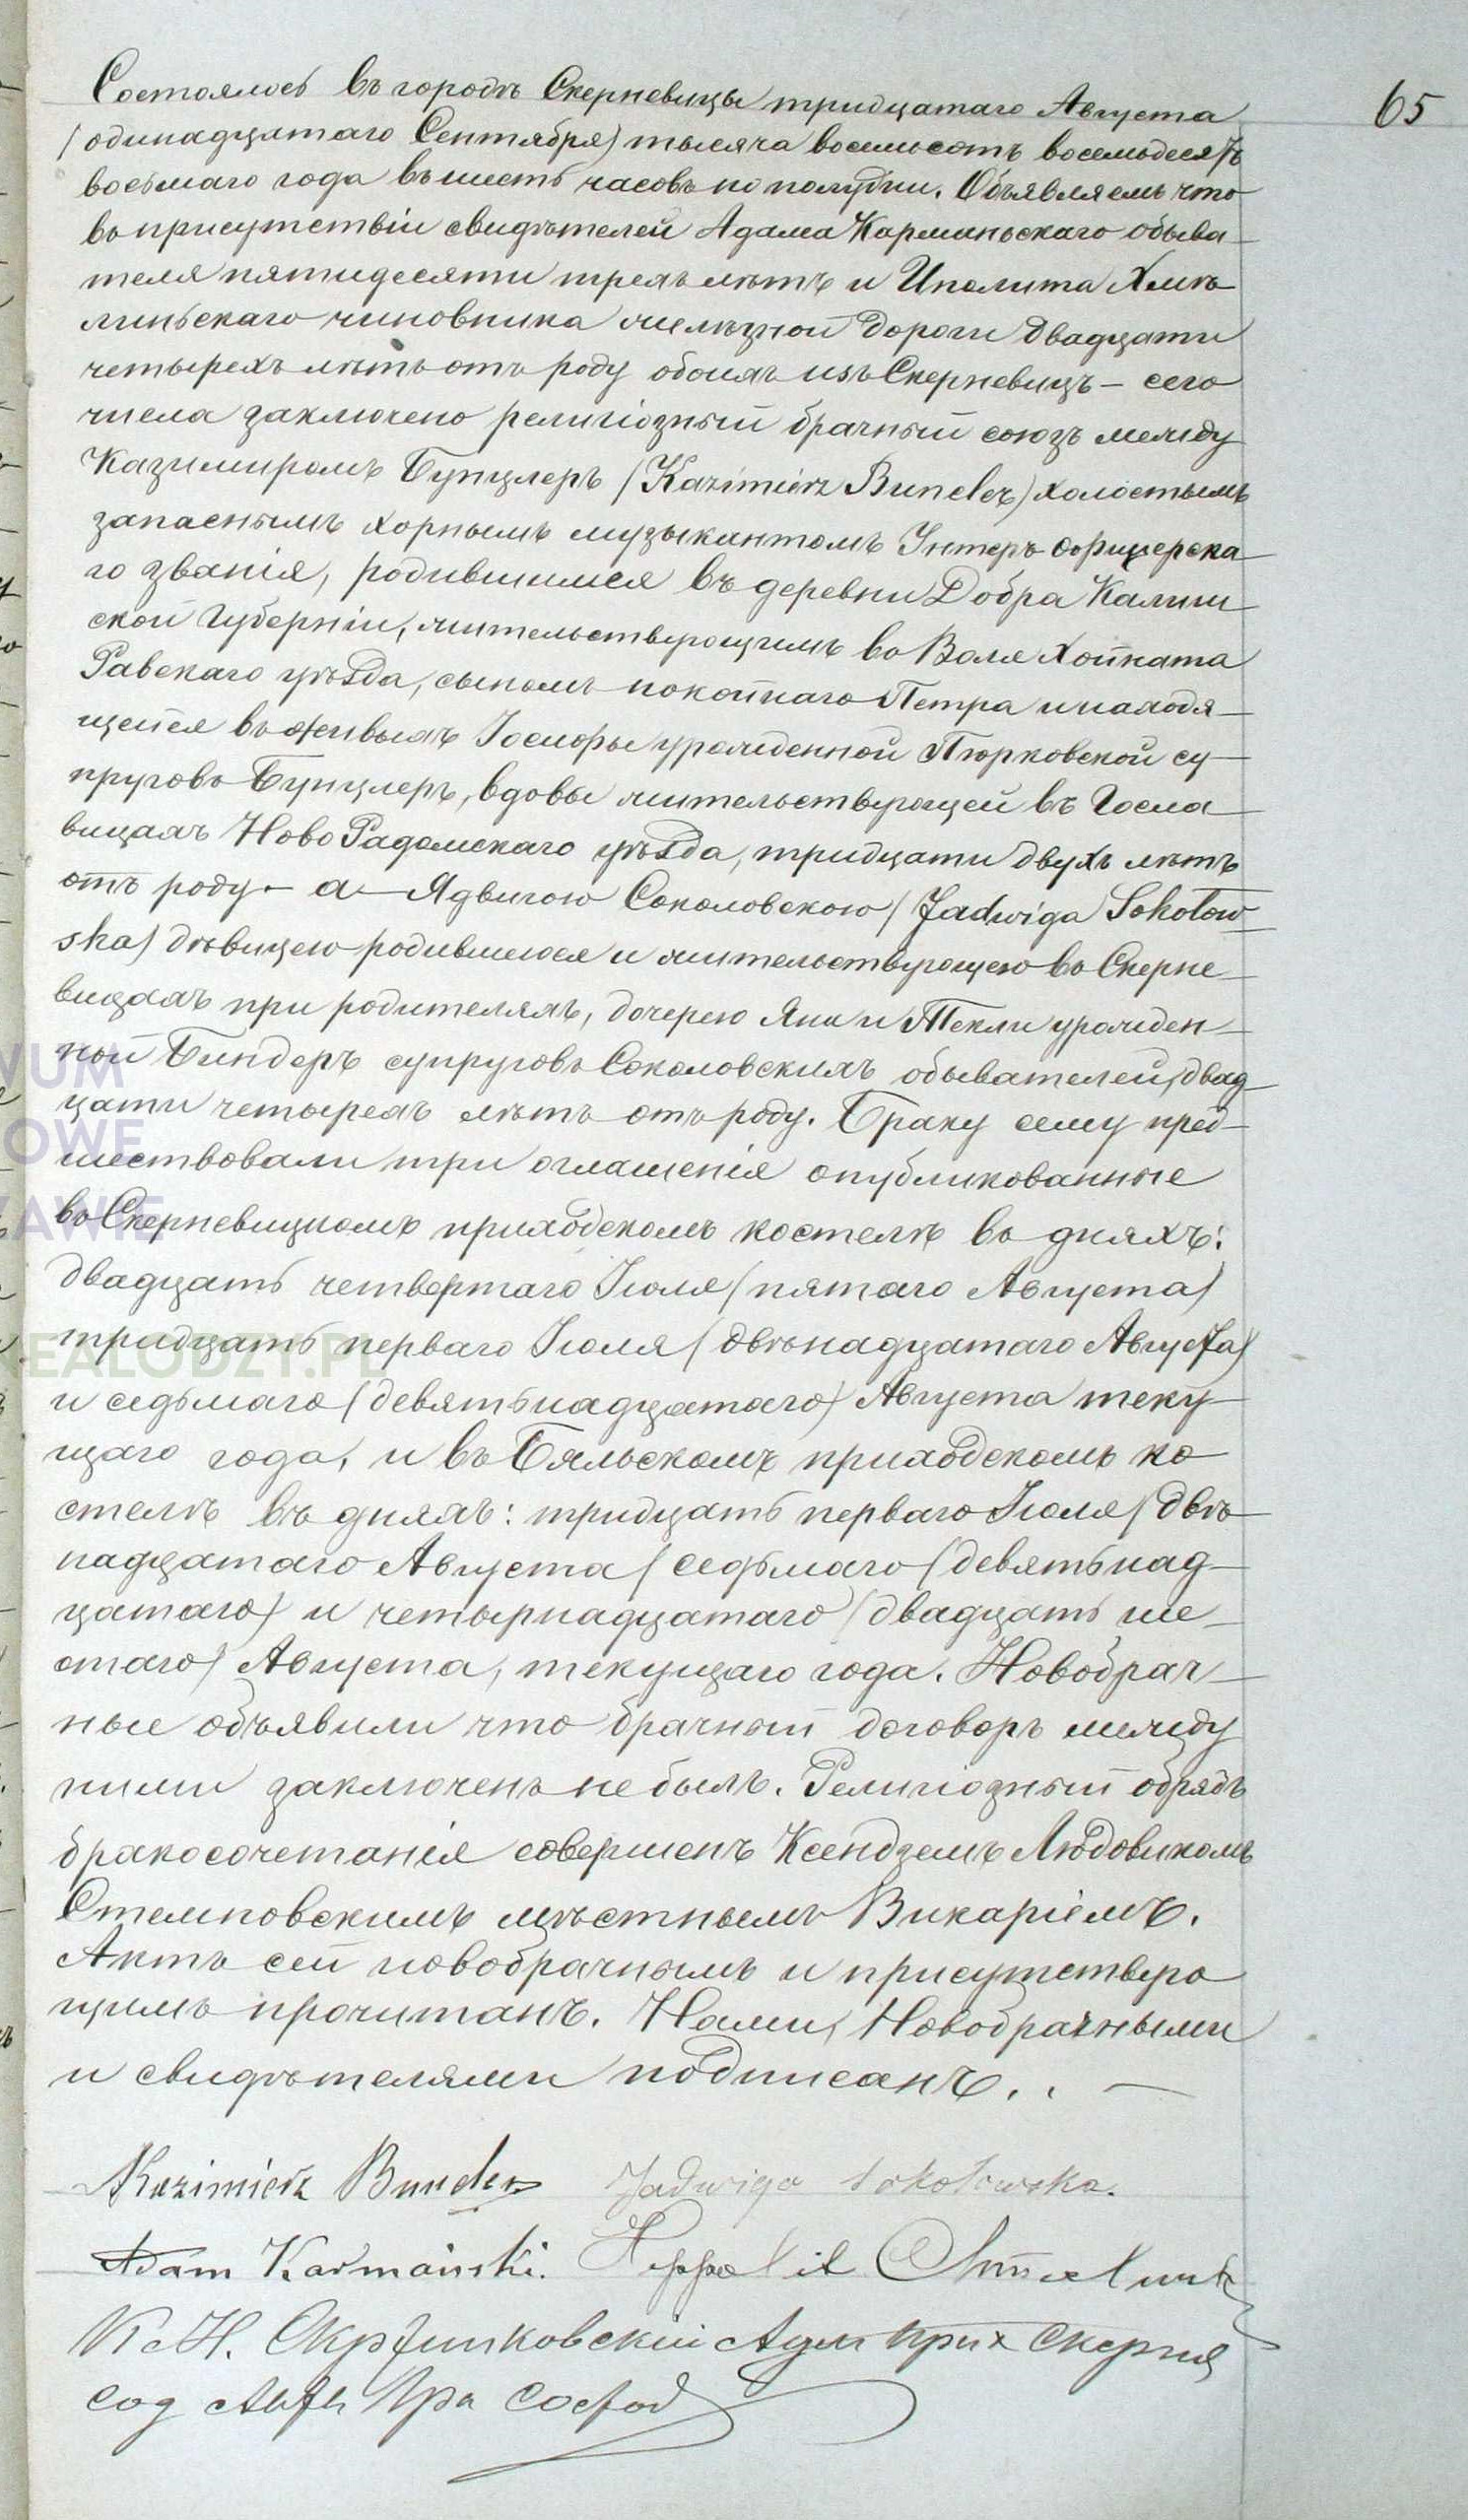 65
Состоялось въ городѣ Скерневицы тридцатаго Августа
(одинадцатаго Сентября) тысяча восемьсотъ восемьдесятъ
восьмаго года въ шесть часовъ по полудни. Объявляемъ что
въ присутствіи свидѣтелей Адама Карманьскаго обыва-
теля пятидесяти трехъ лѣтъ и Иполита Хмѣ-
линьскаго чиновника желѣзной дороги двадцати
четырехъ лѣтъ отъ роду обоихъ изъ Скерневицъ - сего
числа заключено религіозный брачный союзъ между
Казимиромъ Бунцлеръ (Kazimierz Buncler) холостымъ
запаснымъ хорнымъ музыкантомъ Унтеръ офицерска-
го званія, родившимся въ деревни Добра Калиш-
ской Губерніи, жительствующимъ въ Воля Хойната
Равскаго уѣзда, сыномъ покойнаго Петра и находя-
щейся въ живыхъ Іосифы урожденной Пюрковской су-
пруговъ Бунцлеръ, вдовы жительствующей въ Госла-
вицахъ Ново Радомскаго уѣзда, тридцати двухъ лѣтъ
отъ роду - а - Ядвигою Соколовскою (Jadwiga Sokołow-
ska) дѣвицею родившеюся и жительствующею въ Скерне-
вицахъ при родителяхъ, дочерею Яна и Текли урожден-
ной Биндеръ супруговъ Соколовскихъ обывателей, двад-
цати четырехъ лѣтъ отъ роду. Браку сему пред-
шествовали три оглашенія опубликованные
въ Скерневицкомъ приходскомъ костелѣ въ дняхъ:
двадцать четвертаго Іюля (пятаго Августа)
тридцать перваго Іюля (двѣнадцатаго Августа)
и седьмаго (девятьнадцатаго) Августа теку-
щаго года, и въ Бяльскомъ приходскомъ ко-
стелѣ въ дняхъ: тридцать перваго Іюля (двѣ-
надцатаго Августа (седьмаго (девятьнад-
цатаго) и четырнадцатаго (двадцать ше-
стаго) Августа, текущаго года. Новобрач-
ные объявили что брачный договоръ между
ними заключенъ не былъ. Религіозный обрядъ
бракосочетанія совершенъ Ксендземъ Людовикомъ
Стемповскимъ мѣстнымъ Викаріемъ.
Актъ сей новобрачнымъ и присутствую
щимъ прочитанъ. Нами, Новобрачными
и свидѣтелями подписанъ. . -
Kazimierz Buncler Jadwiga Sokołowska.
Adam Karmański. Hippolit
К. Н. Адм Прих Скерня
сод